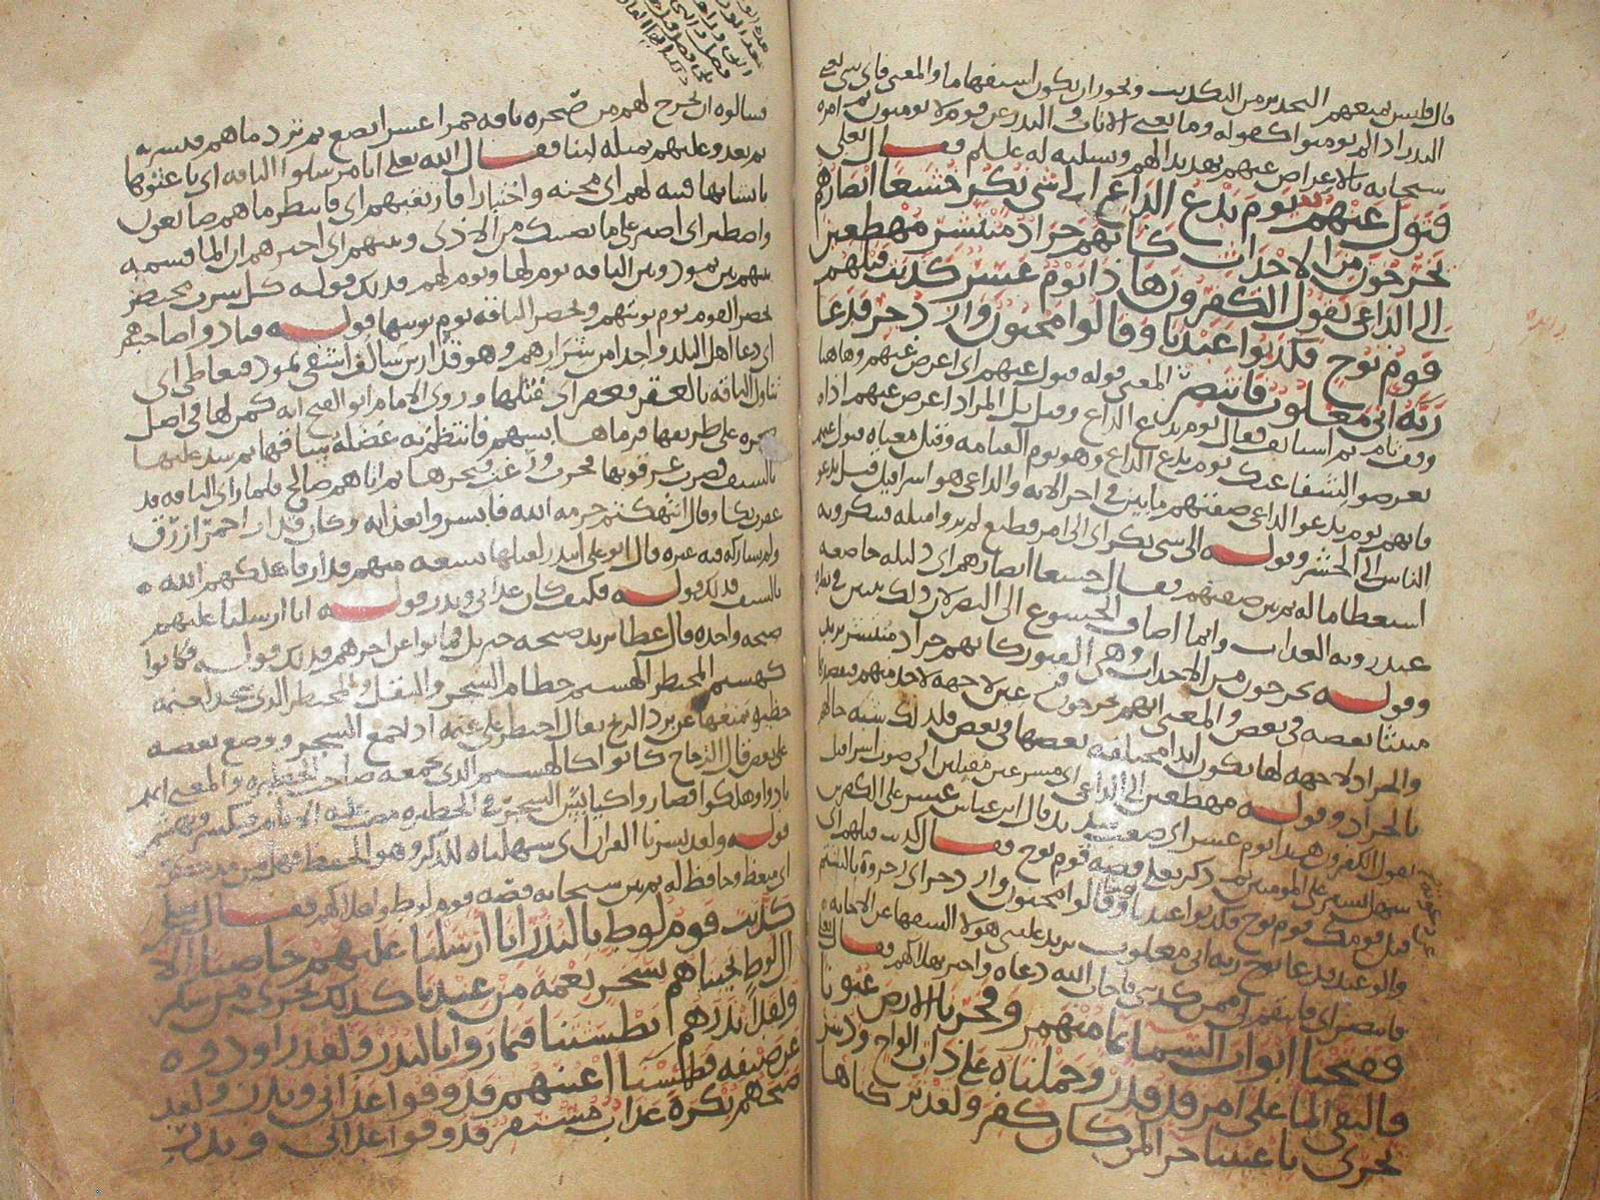 قال فليس يمنعهم التحذير من التكذيب ويجوز ان يكون استفهاما والمعنى فاى شى تغنى
النذر اذا لم يومنوا كقوله وما تغنى الايات والنذر عن قوم لا يومنون ثم امره
سبحانه بالاعراض عنهم تهديدا لهم وتسلية له عليه السلم فقال تعلى
فتول عنهم يوم يدع الداع الى شى نكر خشعا ابصارهم
يخرجون من الاجداث كانهم جراد منتشر مهطعين
الى الداعى يقول الكفرون هذا يوم عسر كذبت قبلهم
قوم نوح فكذبوا عبدنا وقالوا مجنون وازدجر فدعا
ربه انى مغلوب فانتصر المعنى قوله فتول عنهم اى اعرض عنهم وهاهنا
وقف تام ثم استانف فقال يوم يدع الداع وقيل بل المراد اعرض عنهم اذا
تعرضوا لشفاعتك يوم يدع الداع وهو يوم القيامة وقيل معناه فتول عنهم
فانهم يوم يدعو الداعى صفتهم ما بين فى اخر الاية والداعى هو اسرافيل قيل يدعو
الناس الى الحشر وقوله الى شى نكر اى الى امر فظيع لم يروا مثله فينكرونه
استعظاما له ثم بين صفتهم فقال خشعا ابصارهم اى ذليلة خاضعة
عند روية العذاب وانما اضاف الخشوع الى البصر لان ذلك يتبين فى
وقوله يخرجون من الاجداث وهى القبور كانهم جراد منتشر يريد
منبثا بعضه فى بعض والمعنى انهم يخرجون فزعين لا جهة لاحد منهم يقصدها
والجراد لا جهة لها تكون ابدا مختلفة بعضها فى بعض فلذلك شبه حالهم
بالجراد وقوله مهطعين الى الداعى اى مسرعين مقبلين الى صوت اسرافيل
يقول الكفرون هذا يوم عسر اى صعب شديد قال ابن عباس عسر على الكفرين
سهل يسير على المومنين ثم ذكر تعلى قصة قوم نوح فقال كذبت قبلهم اى
قبل قومك قوم نوح فكذبوا عبدنا وقالوا مجنون وازدجر اى زجروه بالشتم
والوعيد فدعا نوح ربه انى مغلوب يريد غلبنى هولا السفها عن الاجابة
فانتصر اى فانتقم لى ممن كذبنى فاجاب الله دعاه واخبر بهلاكهم فقال تعلى
ففتحنا ابواب السما بما منهمر وفجرنا الارض عيونا
فالتقى الما على امر قد قدر وحملناه على ذات الواح ودسر
تجرى باعيننا جزا لمن كان كفر ولقد تركناها
فسالوه ان يخرج لهم من صخرة ناقة حمرا عشرا تضع ثم ترد ماهم فتشربه
ثم تغدو عليهم بمثله لبنا فقال الله تعلى انا مرسلوا الناقة اى باعثوها
بانشايها فتنة لهم اى محنة واختبارا فارتقبهم اى فانتظر ما هم صانعون
واصطبر اى اصبر على ما يصيبك من الاذى ونبيهم اى اخبرهم ان الما قسمة
بينهم بين ثمود وبين الناقة يوم لها ويوم لهم فذلك قوله كل شرب محتضر
يحضر القوم يوم نوبتهم وتحضر الناقة يوم نوبتها قوله فنادوا صاحبهم
اى دعا اهل البلد واحدا من شرارهم وهو قدار بن سالف اشقى ثمود فتعاطى اى
تناول الناقة بالعقر فعقر اى قتلها وروى الامام ابو الفتح انه كمن لها فى اصل
صخرة على طريقها فرماها بسهم فانتظم به عضلة ساقها ثم شد عليها
بالسيف فضرب عرقوبها فخرت ورغت فنحرها ثم اتاهم صالح فلما راى الناقة قد
عقرت بكا وقال انتهكتم حرمة الله فابشروا بعذابه وكان قدار احمر ازرق
بالسيف فذلك قوله فكيف كان عذابى ونذر قوله انا ارسلنا عليهم
صيحة واحدة قال عطا يريد صيحة جبريل فماتوا عن اخرهم فذلك قوله فكانوا
كهشيم المحتظر الهشيم حطام الشجر والبقل والمحتظر الذى يتخذ لغنمه
حظيرة تمنعها عن برد الريح يقال احتظر على غنمه اذا جمع الشجر ووضع بعضه
على بعض قال الزجاج كانوا كالهشيم الذى يجمعه صاحب الحظيرة والمعنى انهم
قوله ولقد يسرنا القران اى سهلناه للذكر وهو الحفظ فهل من مدكر
اى متعظ وحافظ له ثم بين سبحانه قصة قوم لوط واهلاكهم فقال تعلى
كذبت قوم لوط بالنذر انا ارسلنا عليهم حاصبا الا
ال لوط نجيناهم بسحر نعمة من عندنا كذلك نجزى من شكر
ولقد انذرهم بطشتنا فتماروا بالنذر ولقد راودوه
عن ضيفه فطمسنا اعينهم فذوقوا عذابى ونذر ولقد
صبحهم بكرة عذاب مستقر فذوقوا عذابى ونذر